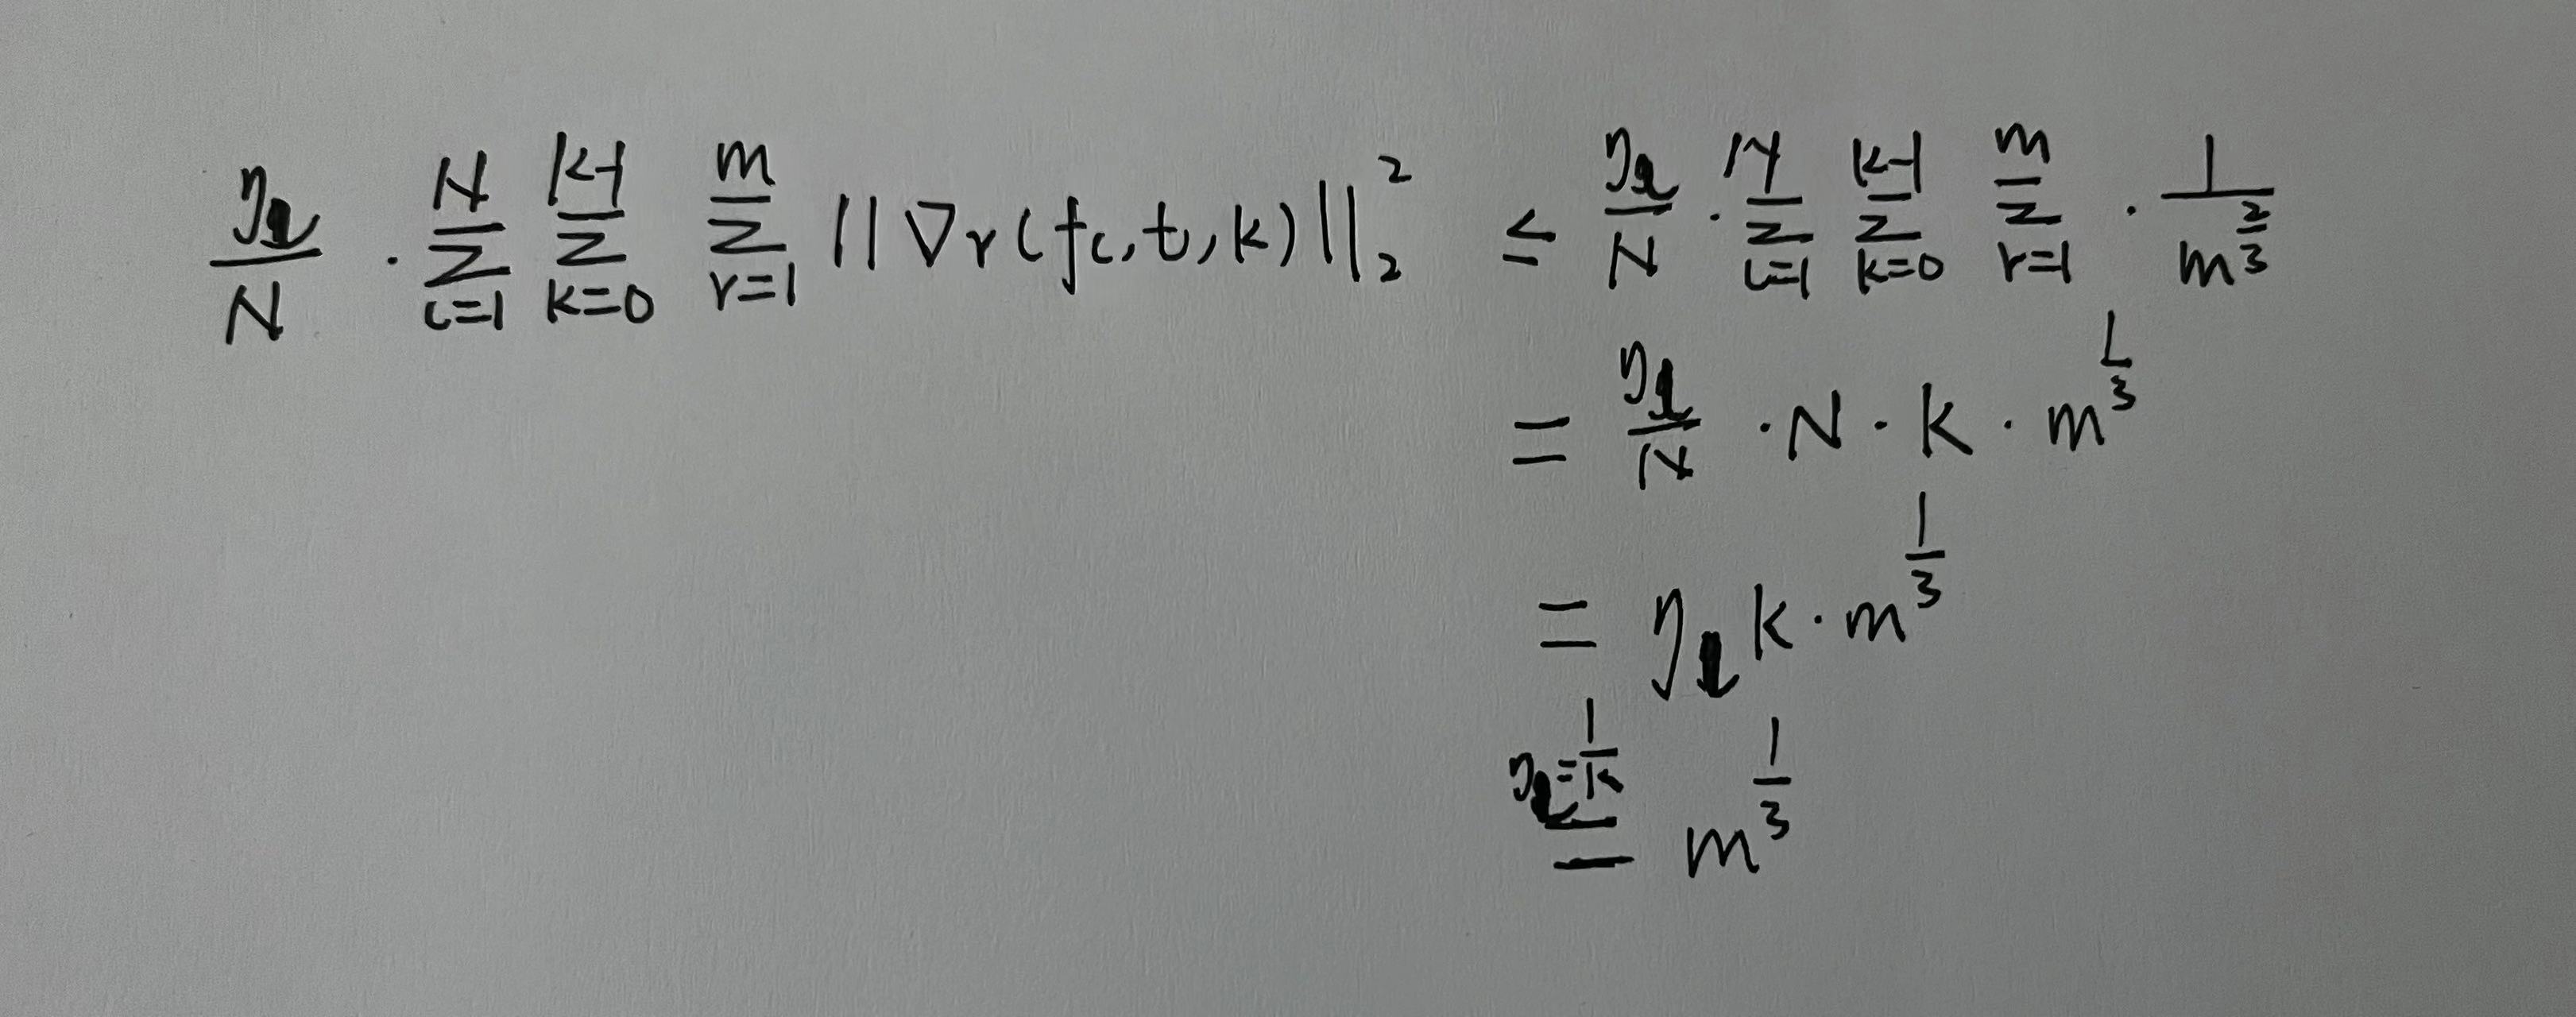 $\frac{\eta_l}{N} \cdot \sum_{c=1}^{N} \sum_{k=0}^{K-1} \sum_{r=1}^{m} || \nabla_r (f_c, t, k) ||_2^2 \leq \frac{\eta_l}{N} \cdot \sum_{c=1}^{N} \sum_{k=0}^{K-1} \sum_{r=1}^{m} \cdot \frac{1}{m^{\frac{2}{3}}}$
$= \frac{\eta_l}{N} \cdot N \cdot K \cdot m^{\frac{1}{3}}$
$= \eta_l K \cdot m^{\frac{1}{3}}$
$\overset{\eta_l = \frac{1}{K}}{=} m^{\frac{1}{3}}$